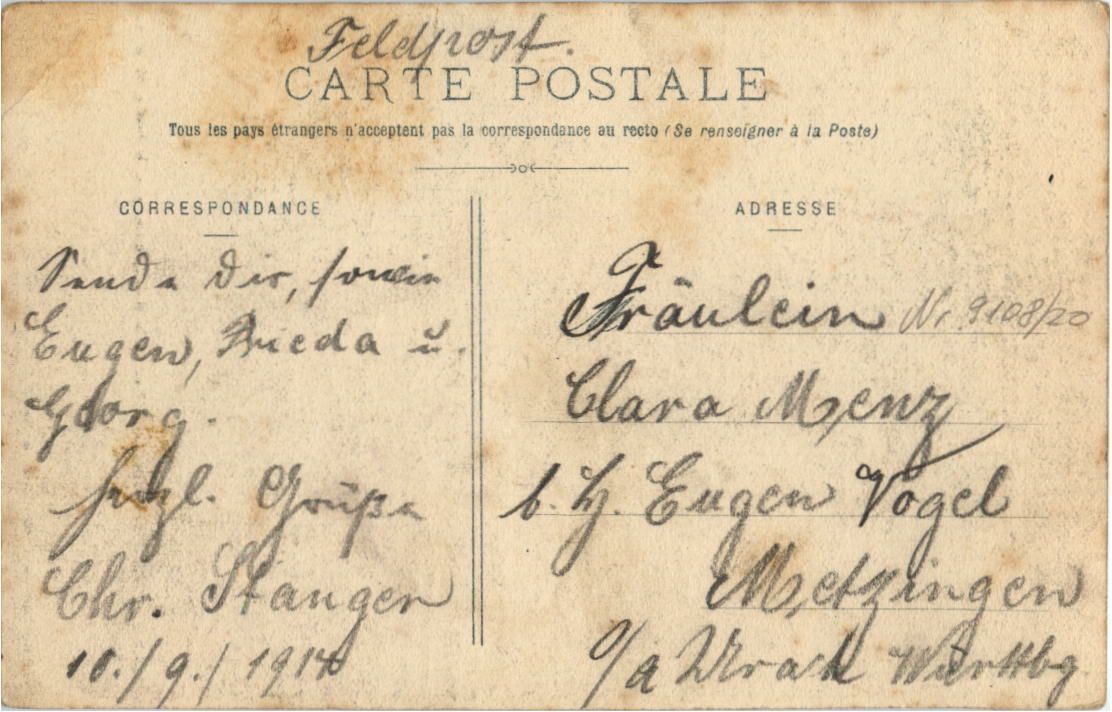 Feldpost.
CARTE POSTALE
Tous les pays étrangers n'acceptent pas la correspondance au recto (Se renseigner à la Poste)
CORRESPONDANCE
Sende Dir, sowie
Eugen, Frieda u.
Georg.
herzl. Grüße
Chr. Stanger
10./9./1914
ADRESSE
Fräulein Nr 9108/20
Clara Menz
b. H. Eugen Vogel
Metzingen
O/A Urach Württbg